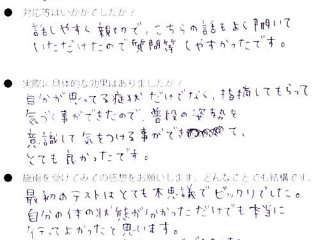 ● 対応等はいかがでしたか？
話しやすく親切で、こちらの話もよく聞いて
いただけたので質問等しやすかったです。
● 実際に具体的な効果はありましたか？
自分が思ってる症状だけでなく、指摘してもらって
気づく事ができたので、普段の姿勢を
意識して気をつける事ができて、
とても良かったです。
● 施術を受けてみての感想をお願いします。どんなことでも結構です。
最初のテストはとても不思議でビックリでした。
自分の体の状態が分かっただけでも本当に
行ってよかったと思います。